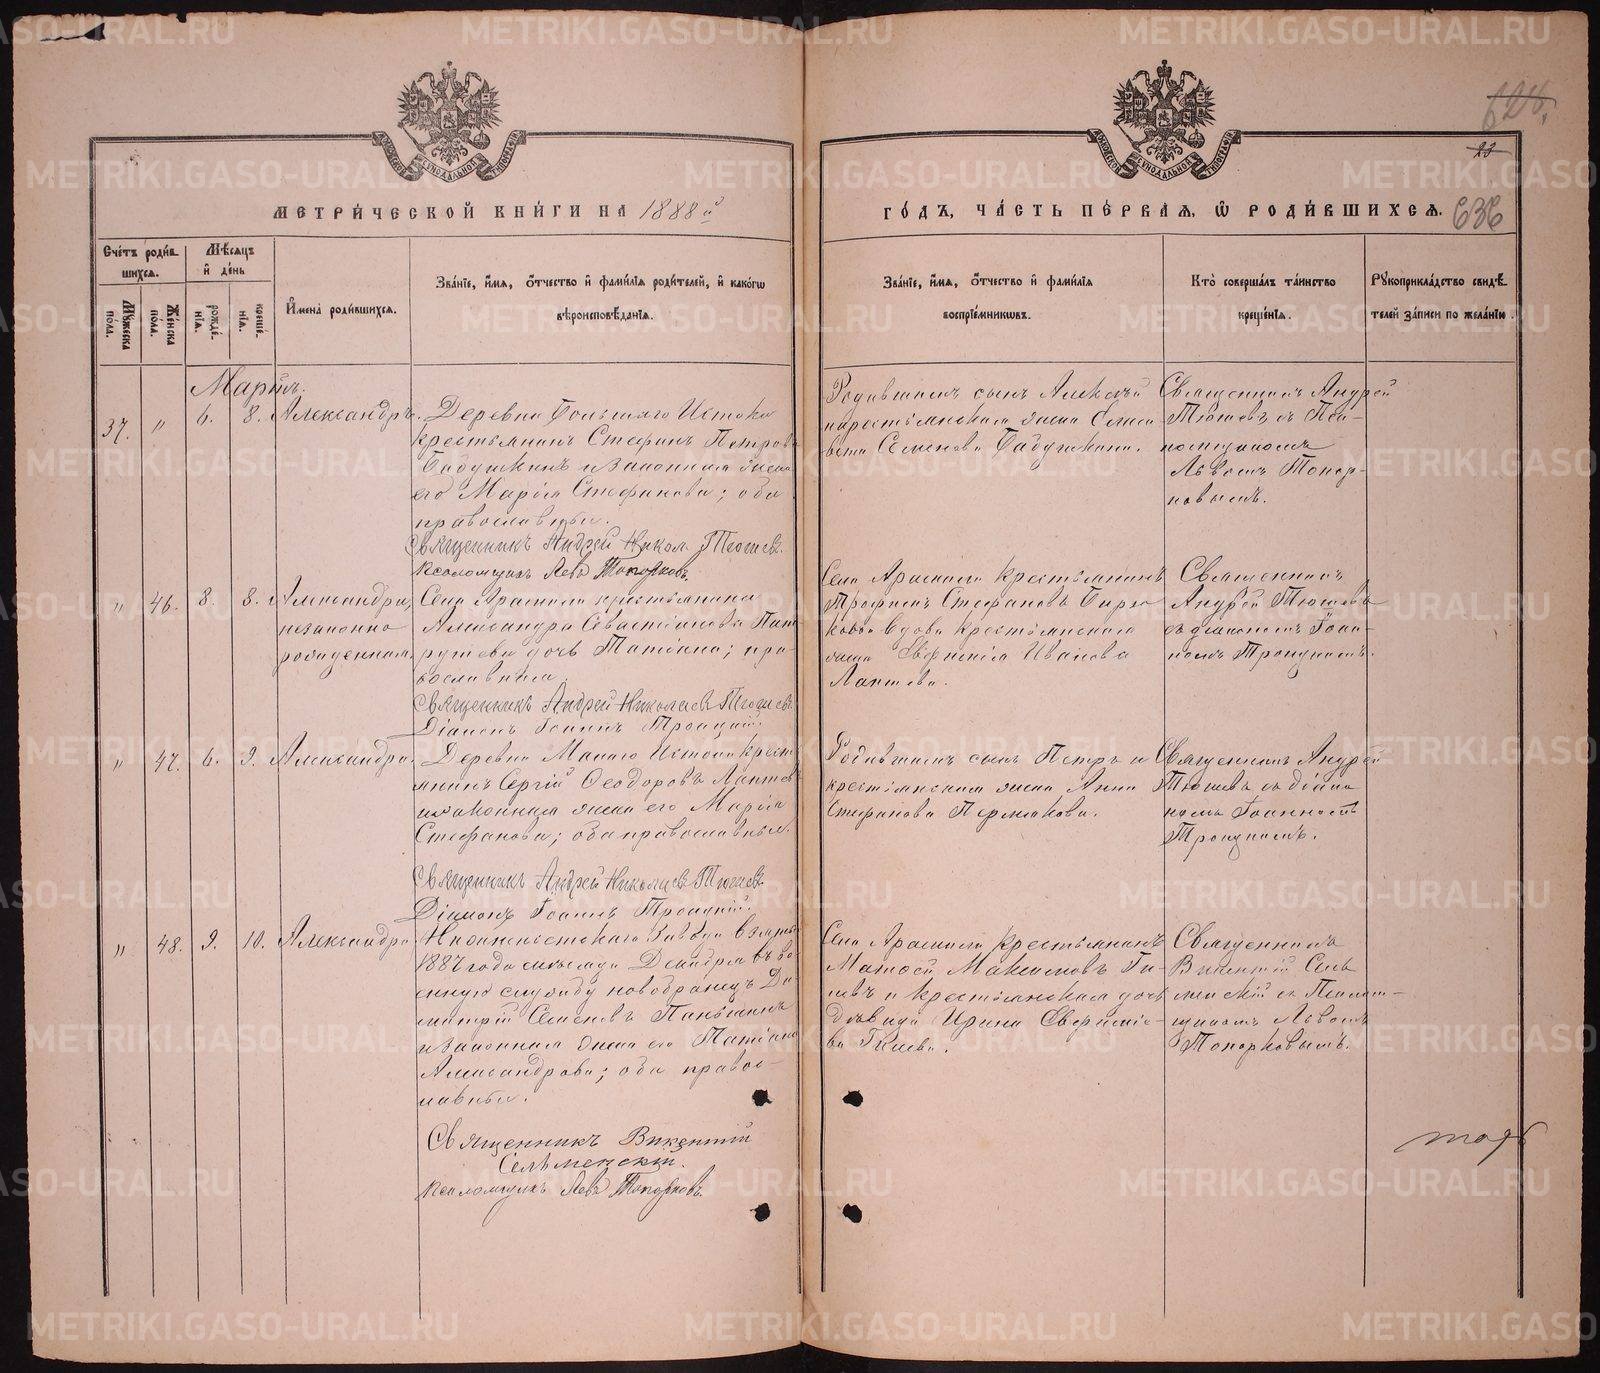 МЕТРИ́ЧЕСКОЙ КНИ́ГИ НА 1888 й
ГО́ДЪ, ЧА́СТЬ ПЕ́РВАЯ, Ѡ РОДИ́ВШИХСЯ. 636
628.
23
Сче́тъ роди́в
шихся.
Мѣ́сяцъ
и҆ де́нь
Му́жеска
по́ла.
Же́нска
по́ла.
рожде́
нїя.
креще́
нїя.
И҆мена̀ роди́вшихся.
Зва́нїе, и҆́мя, ѻ҆́тчество и҆ фами́лїя роди́телей, и҆ како́гѡ
вѣроисповѣ́данїя.
Зва́нїе, и҆́мя, ѻ҆́тчество и҆ фами́лїя
воспрїе́мникѡвъ.
Кто̀ соверша́лъ та́инство
креще́нїя.
Рꙋкоприкла́дство свидѣ́
телей за́писи по жела́нїю.
Мартъ.
37. " 6. 8. Александръ.
Деревни Большаго Истока
крестьянинъ Стефанъ Петровъ
Бабушкинъ и законная жена
его Марія Стефанова; оба
православные.
Священникъ Андрей Никол. Тюшев.
Псаломщикъ Левъ Топорковъ.
Родившагося сынъ Алексѣй
и крестьянская жена Елиса
вета Семенова Бабушкина.
Священникъ Андрей
Тюшевъ съ Пса-
ломщикомъ
Львомъ Топор-
ковымъ.
" 46. 8. 8. Александра,
незаконно
рожденная.
Села Арамили крестьянки
Александры Севастіановой Пат
рушевой дочь Татіана; пра-
вославная.
Священникъ Андрей Николаевъ Тюшевъ
Діаконъ Іоаннъ Троицкій.
Села Арамили крестьянинъ
Трофимъ Стефановъ Бирю
ковъ и вдова крестьянская
жена Евфимія Иванова
Лаптева.
Священникъ
Андрей Тюшевъ
съ діакономъ Іоан-
номъ Троицкимъ.
" 47. 6. 9. Александра.
Деревни Малаго Истока кресть
янинъ Сергій Ѳеодоровъ Лаптев
и законная жена его Марія
Стефанова; оба православные.
Священникъ Андрей Николаев Тюшев
Діаконъ Іоаннъ Троицкій.
Родившагося сынъ Петръ и
крестьянская жена Анна
Стефанова Пермякова.
Священникъ Андрей
Тюшевъ съ діако
номъ Іоанномъ
Троицкимъ.
" 48. 9. 10. Александра
Нижнеисетскаго Завода взятый
1887 года мѣсяца Декабря въ во
енную службу новобранецъ Ди
митрій Семеновъ Паньшинъ
и законная жена его Татіана
Александрова; оба правос-
лавные.
Священникъ Викентій
Сельменскій.
Псаломщикъ Левъ Топорковъ.
Села Арамили крестьянинъ
Матѳей Максимовъ Ги-
левъ и крестьянская дочь
дѣвица Ирина Евфиміе-
ва Гилева.
Священникъ
Викентій Сель
менскій съ Псалом-
щикомъ Львомъ
Топорковымъ.